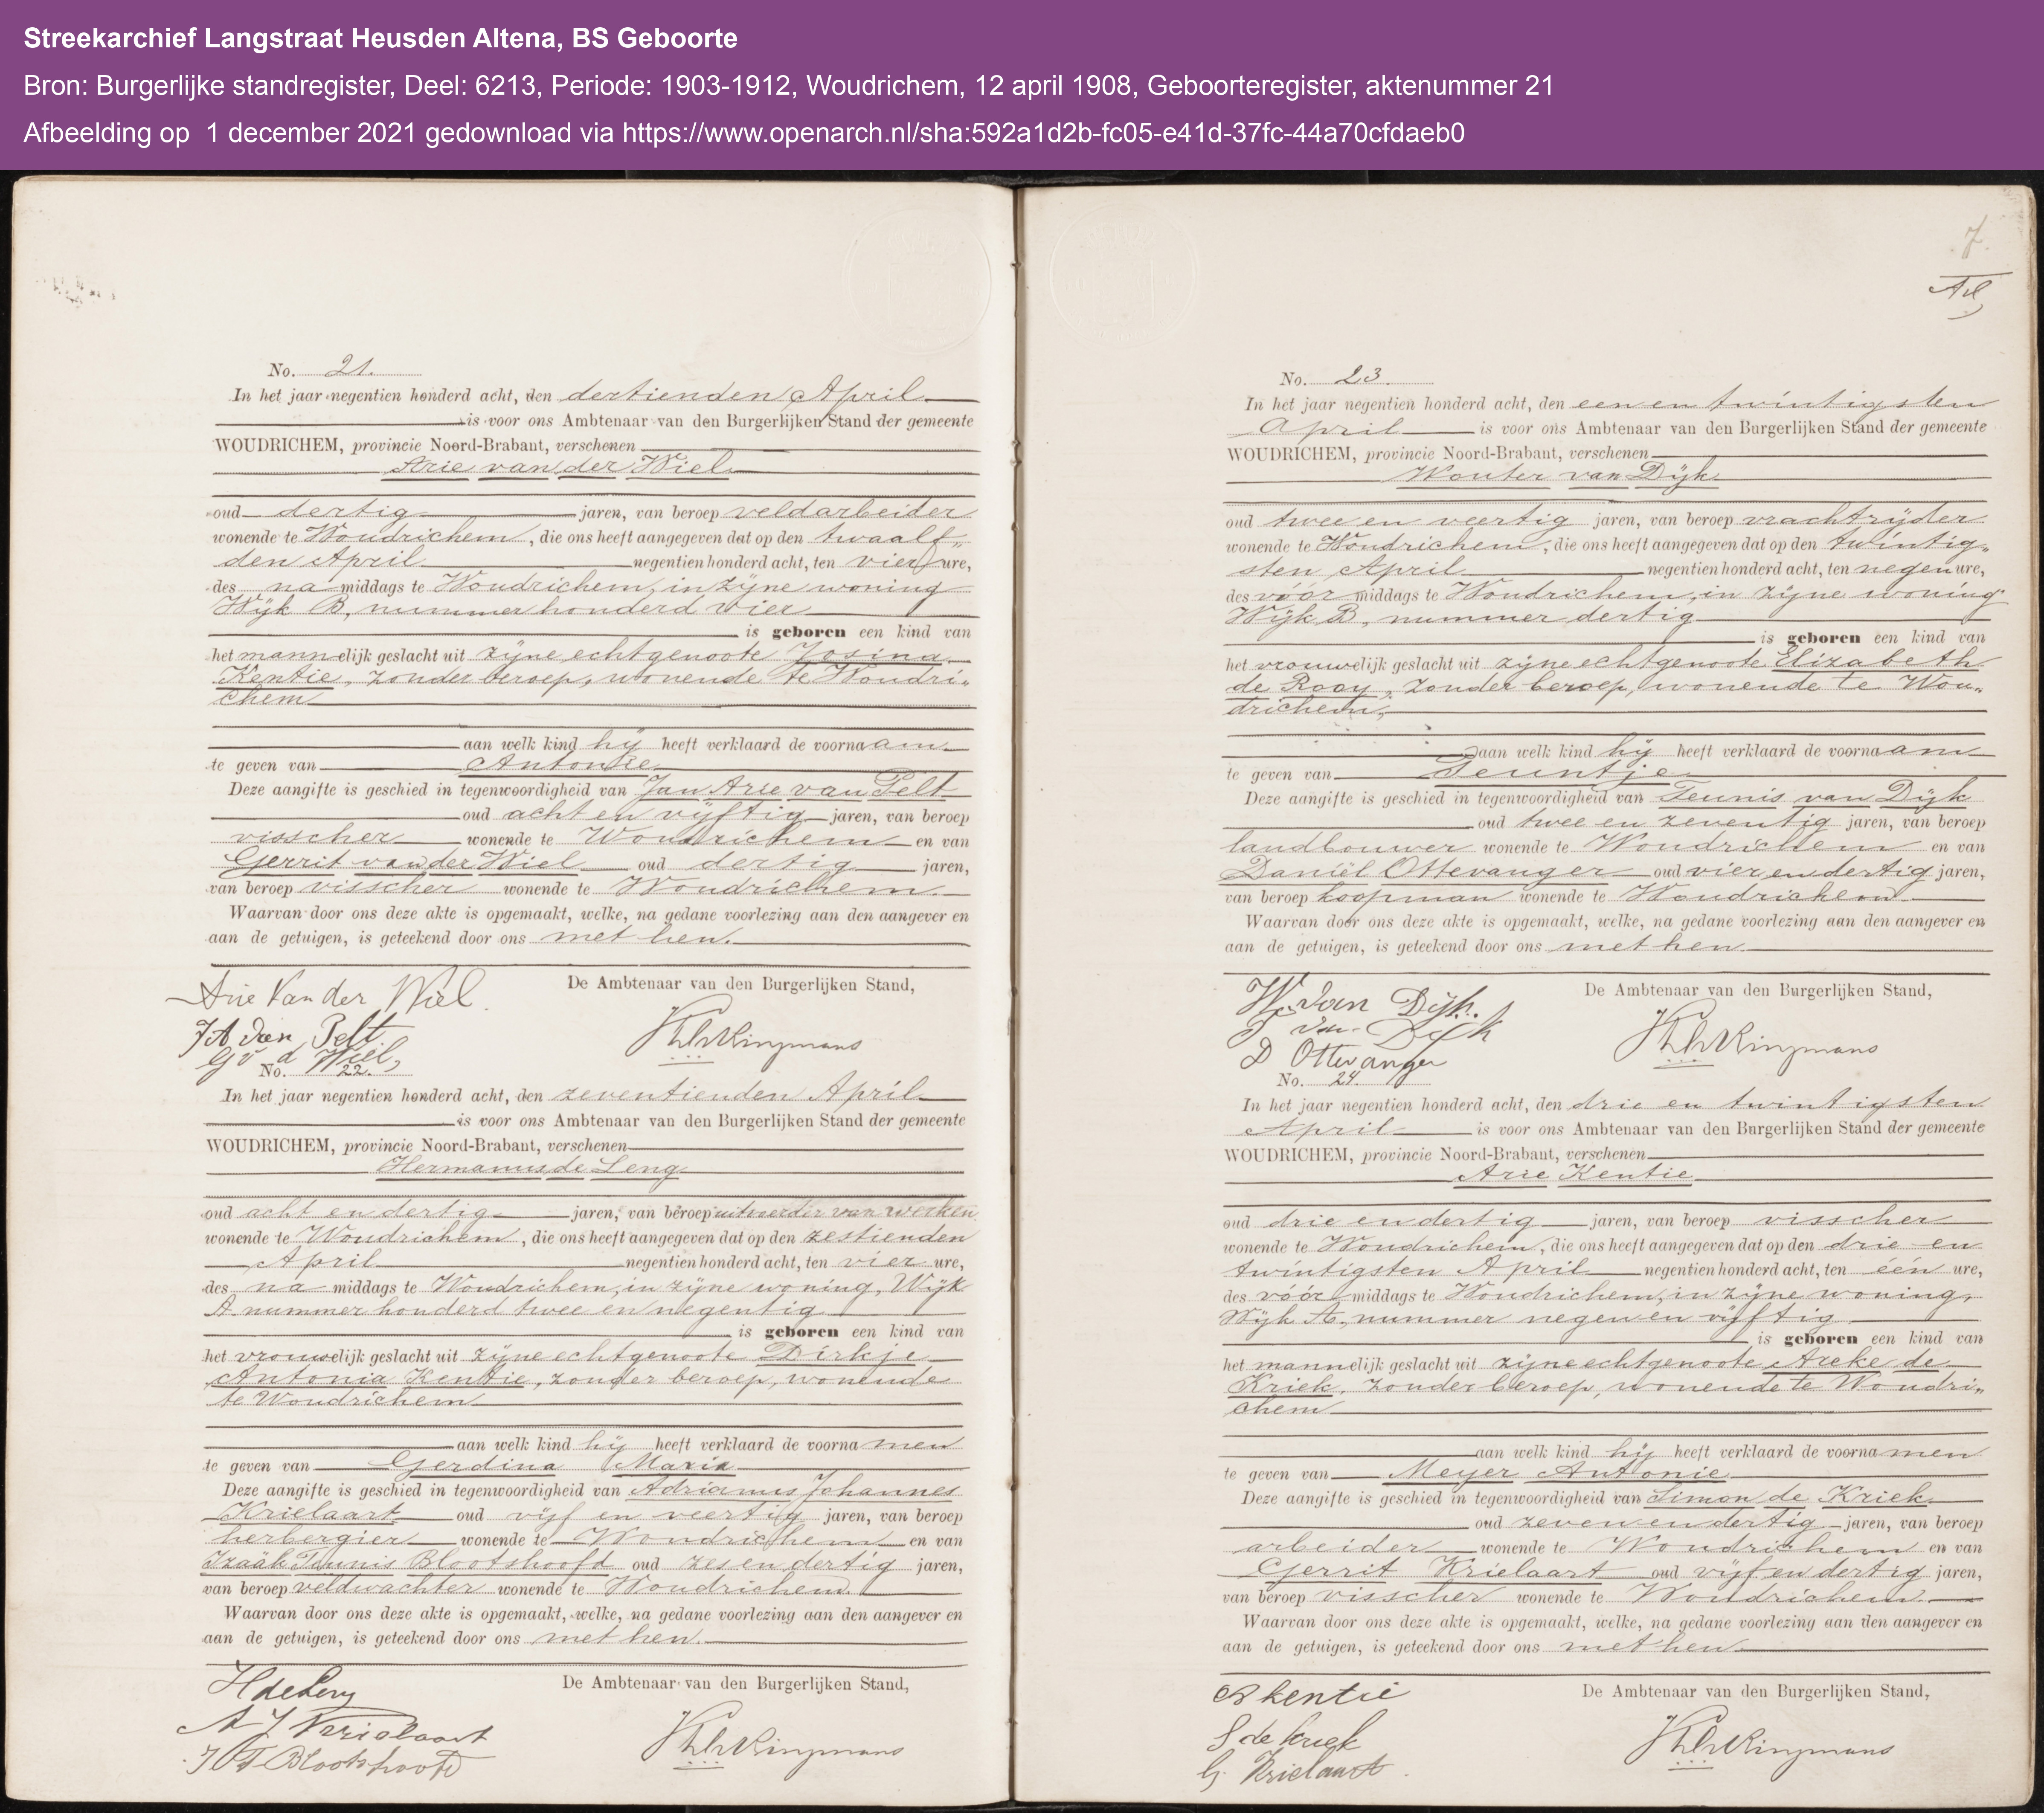 Streekarchief Langstraat Heusden Altena, BS Geboorte
Bron: Burgerlijke standregister, Deel: 6213, Periode: 1903-1912, Woudrichem, 12 april 1908, Geboorteregister, aktenummer 21
Afbeelding op 1 december 2021 gedownload via https://www.openarch.nl/sha:592a1d2b-fc05-e41d-37fc-44a70cfdaeb0
No. 21.
In het jaar negentien honderd acht, den dertienden April
is voor ons Ambtenaar van den Burgerlijken Stand der gemeente
WOUDRICHEM, provincie Noord-Brabant, verschenen
Arie van der Wiel
oud dertig jaren, van beroep veldarbeider
wonende te Woudrichem, die ons heeft aangegeven dat op den twaalf„
den April negentien honderd acht, ten vier ure,
des na middags te Woudrichem, in zijne woning
Wijk B, nummer honderd vier
is geboren een kind van
het mannelijk geslacht uit zijne echtgenoote Josina
Kentie, zonder beroep, wonende te Woudri„
chem
aan welk kind hij heeft verklaard de voornaam
te geven van Antonie
Deze aangifte is geschied in tegenwoordigheid van Jan Arie van Pelt
oud acht en vijftig jaren, van beroep
visscher wonende te Woudrichem en van
Gerrit van der Wiel oud dertig jaren,
van beroep visscher wonende te Woudrichem.
Waarvan door ons deze akte is opgemaakt, welke, na gedane voorlezing aan den aangever en
aan de getuigen, is geteekend door ons met hen.
De Ambtenaar van den Burgerlijken Stand,
Arie Van der Wiel
J A van Pelt
G v d Wiel
No. 22.
In het jaar negentien honderd acht, den zeventienden April
is voor ons Ambtenaar van den Burgerlijken Stand der gemeente
WOUDRICHEM, provincie Noord-Brabant, verschenen
Hermanus de Leng
oud acht en dertig jaren, van beroep uitvoerder van werken
wonende te Woudrichem, die ons heeft aangegeven dat op den zestienden
April negentien honderd acht, ten vier ure,
des na middags te Woudrichem, in zijne woning, Wijk
A nummer honderd twee en negentig
is geboren een kind van
het vrouwelijk geslacht uit zijne echtgenoote Dirkje
Antonia Kentie, zonder beroep, wonende
te Woudrichem
aan welk kind hij heeft verklaard de voornamen
te geven van Gerdina Maria
Deze aangifte is geschied in tegenwoordigheid van Adrianus Johannes
Krielaart oud vijf en veertig jaren, van beroep
herbergier wonende te Woudrichem en van
Izaäk Teunis Blootshoofd oud zes en dertig jaren,
van beroep veldwachter wonende te Woudrichem.
Waarvan door ons deze akte is opgemaakt, welke, na gedane voorlezing aan den aangever en
aan de getuigen, is geteekend door ons met hen.
De Ambtenaar van den Burgerlijken Stand,
H de Leng
A J Krielaart
I T Blootshoofd
7.
No. 23.
In het jaar negentien honderd acht, den een en twintigsten
April is voor ons Ambtenaar van den Burgerlijken Stand der gemeente
WOUDRICHEM, provincie Noord-Brabant, verschenen
Wouter van Dijk
oud twee en veertig jaren, van beroep vrachtrijder
wonende te Woudrichem, die ons heeft aangegeven dat op den twintig„
sten April negentien honderd acht, ten negen ure,
des vóór middags te Woudrichem, in zijne woning
Wijk B, nummer dertig
is geboren een kind van
het vrouwelijk geslacht uit zijne echtgenoote Elizabeth
de Rooy, zonder beroep, wonende te Wou„
drichem,
aan welk kind hij heeft verklaard de voornaam
te geven van Teuntje
Deze aangifte is geschied in tegenwoordigheid van Teunis van Dijk
oud twee en zeventig jaren, van beroep
landbouwer wonende te Woudrichem en van
Daniël Ottevanger oud vier en dertig jaren,
van beroep koopman wonende te Woudrichem.
Waarvan door ons deze akte is opgemaakt, welke, na gedane voorlezing aan den aangever en
aan de getuigen, is geteekend door ons met hen
De Ambtenaar van den Burgerlijken Stand,
W. van Dijk.
T van Dijk
D Ottevanger
No. 24.
In het jaar negentien honderd acht, den drie en twintigsten
April is voor ons Ambtenaar van den Burgerlijken Stand der gemeente
WOUDRICHEM, provincie Noord-Brabant, verschenen
Arie Kentie
oud drie en dertig jaren, van beroep visscher
wonende te Woudrichem, die ons heeft aangegeven dat op den drie en
twintigsten April negentien honderd acht, ten één ure,
des vóór middags te Woudrichem, in zijne woning,
Wijk A, nummer negen en vijftig
is geboren een kind van
het mannelijk geslacht uit zijne echtgenoote Aaeke de
Kriek, zonder beroep, wonende te Woudri„
chem
aan welk kind hij heeft verklaard de voornamen
te geven van Meyer Antonie
Deze aangifte is geschied in tegenwoordigheid van Simon de Kriek
oud zeven en dertig jaren, van beroep
arbeider wonende te Woudrichem en van
Gerrit Krielaart oud vijf en dertig jaren,
van beroep visscher wonende te Woudrichem.
Waarvan door ons deze akte is opgemaakt, welke, na gedane voorlezing aan den aangever en
aan de getuigen, is geteekend door ons met hen
De Ambtenaar van den Burgerlijken Stand,
A kentie
S de kriek
G. Krielaart